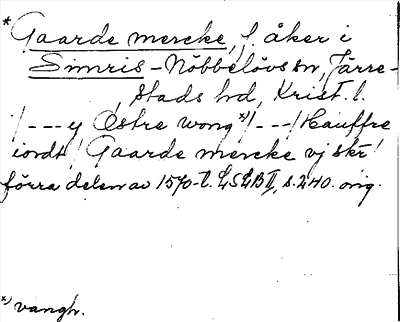 * Gaarde mercke, f. åker i
Simris-Nöbbelövs sn, Järre-
stads hd, Krist. l.
/---y Østre wong *)/---/ Hauffre
iordt / Gaarde mercke vj skr /
förra delen av 1570-t. LSLB II, s. 240. orig.
*) vangh.